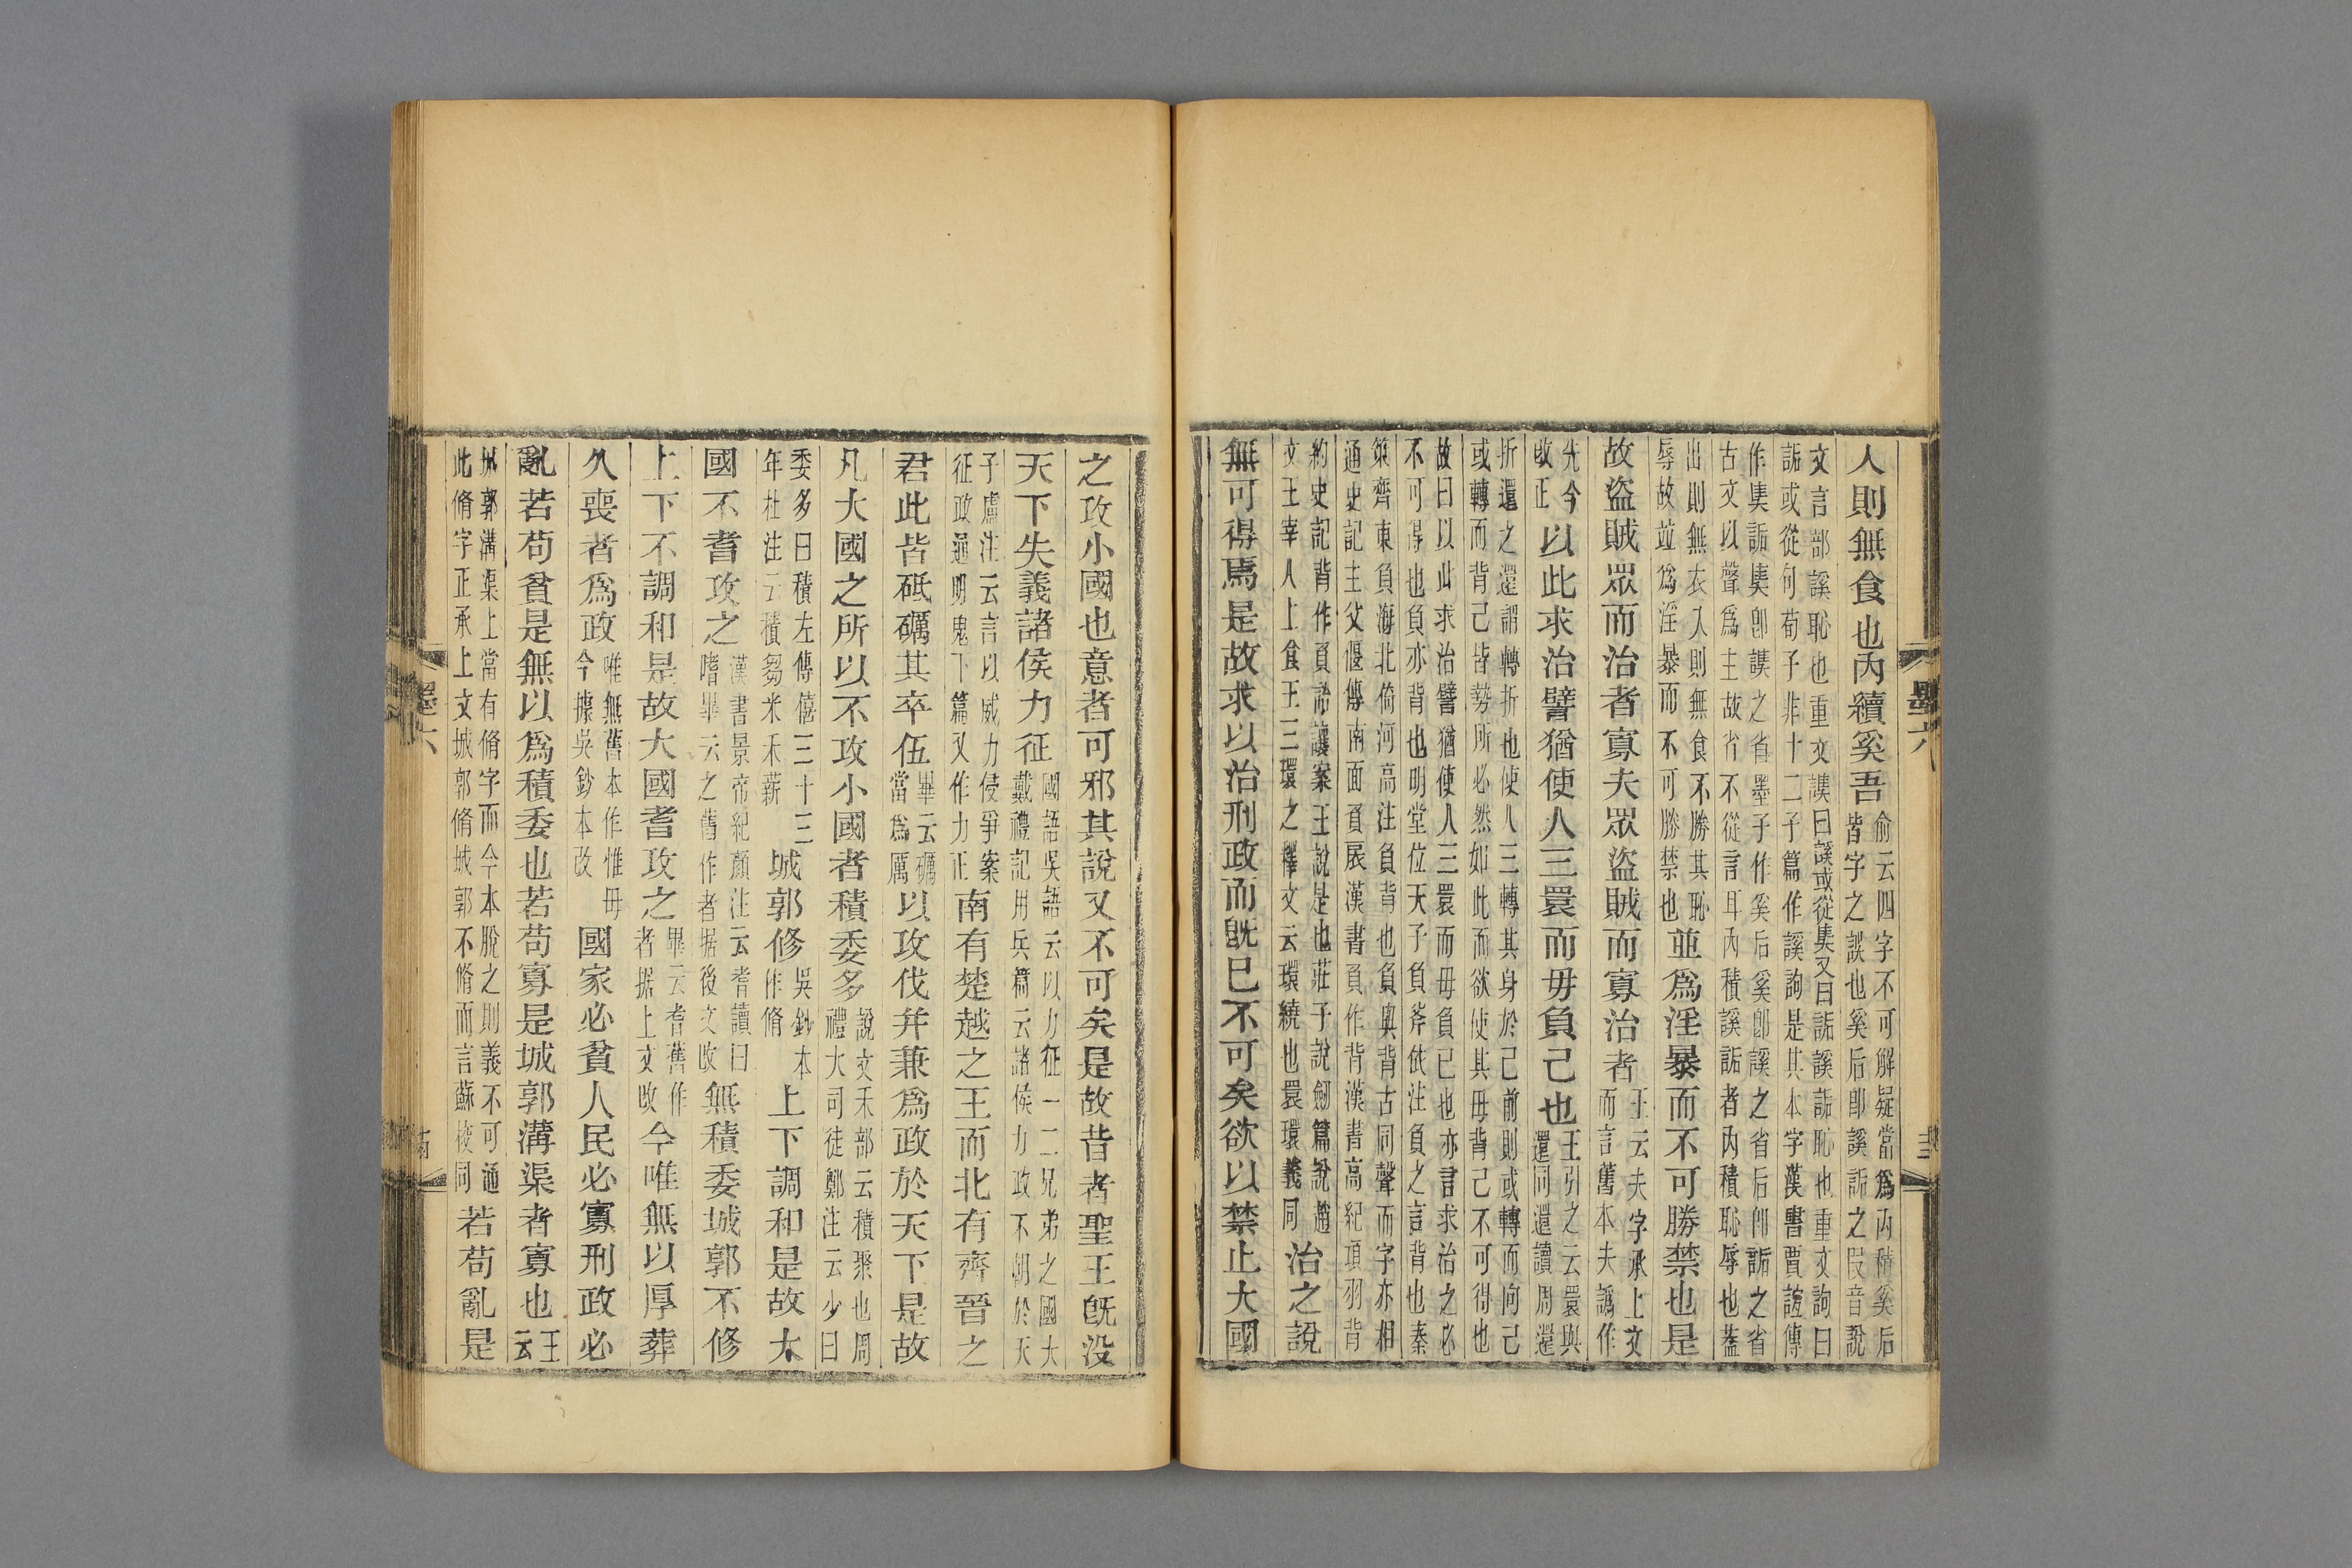 人則無食也內續奚吾俞云四字不可解疑當爲內積奚后
皆字之誤也奚后卽謑詬之叚音說
文言部謑恥也重文䜁曰謑或從𡙇又曰詬謑詬恥也重文訽曰
詬或從句荀子非十二子篇作謑訽是其本字漢書賈誼傳
作𡙇詬𡙇卽䜁之省墨子作奚后奚卽謑之省后卽詬之省
古文以聲爲主故省不從言耳內積謑詬者內積恥辱也葢
出則無衣入則無食不勝其恥
辱故竝爲淫暴而不可勝禁也並爲淫暴而不可勝禁也是
故盜賊眾而治者寡夫眾盜賊而寡治者王云夫字承上文
而言舊本夫譌作
先今
改正以此求治譬猶使人三睘而毋負己也王引之云睘與
還同還讀周還
折還之還謂轉折也使人三轉其身於己前則或轉而向己
或轉而背己皆勢所必然如此而欲使其毋背己不可得也
故曰以此求治譬猶使人三睘而毋負已也亦言求治之必
不可得也負亦背也明堂位天子負斧依注負之言背也秦
策齊東負海北倚河高注負背也負與背古同聲而字亦相
通史記主父偃傳南面負扆漢書負作背漢書高紀項羽背
約史記背作負詒讓案王說是也莊子說劒篇說趙
文王宰人上食王三環之釋文云環繞也睘環義同治之說
無可得焉是故求以治刑政而旣已不可矣欲以禁止大國
之攻小國也意者可邪其說又不可矣是故昔者聖王旣没
天下失義諸侯力征國語吳語云以力征一二兄弟之國大
戴禮記用兵篇云諸侯力政不朝於天
子盧注云言以威力侵爭案
征政通明鬼下篇又作力正南有楚越之王而北有齊晉之
君此皆砥礪其卒伍畢云礪
當爲厲以攻伐并兼爲政於天下是故
凡大國之所以不攻小國者積委多說文禾部云積聚也周
禮大司徒鄭注云少曰
委多曰積左傳僖三十三
年杜注云積芻米禾薪城郭修吳鈔本
作脩上下調和是故大
國不耆攻之漢書景帝紀顏注云耆讀曰
嗜畢云之舊作者据後文改無積委城郭不修
上下不調和是故大國耆攻之畢云耆舊作
者据上文改今唯無以厚葬
久喪者爲政唯無舊本作惟毋
今據吳鈔本改國家必貧人民必寡刑政必
亂若苟貧是無以爲積委也若苟寡是城郭溝渠者寡也王
云
城郭溝渠上當有脩字而今本脫之則義不可通
此脩字正承上文城郭脩城郭不脩而言蘇校同若苟亂是
墨六